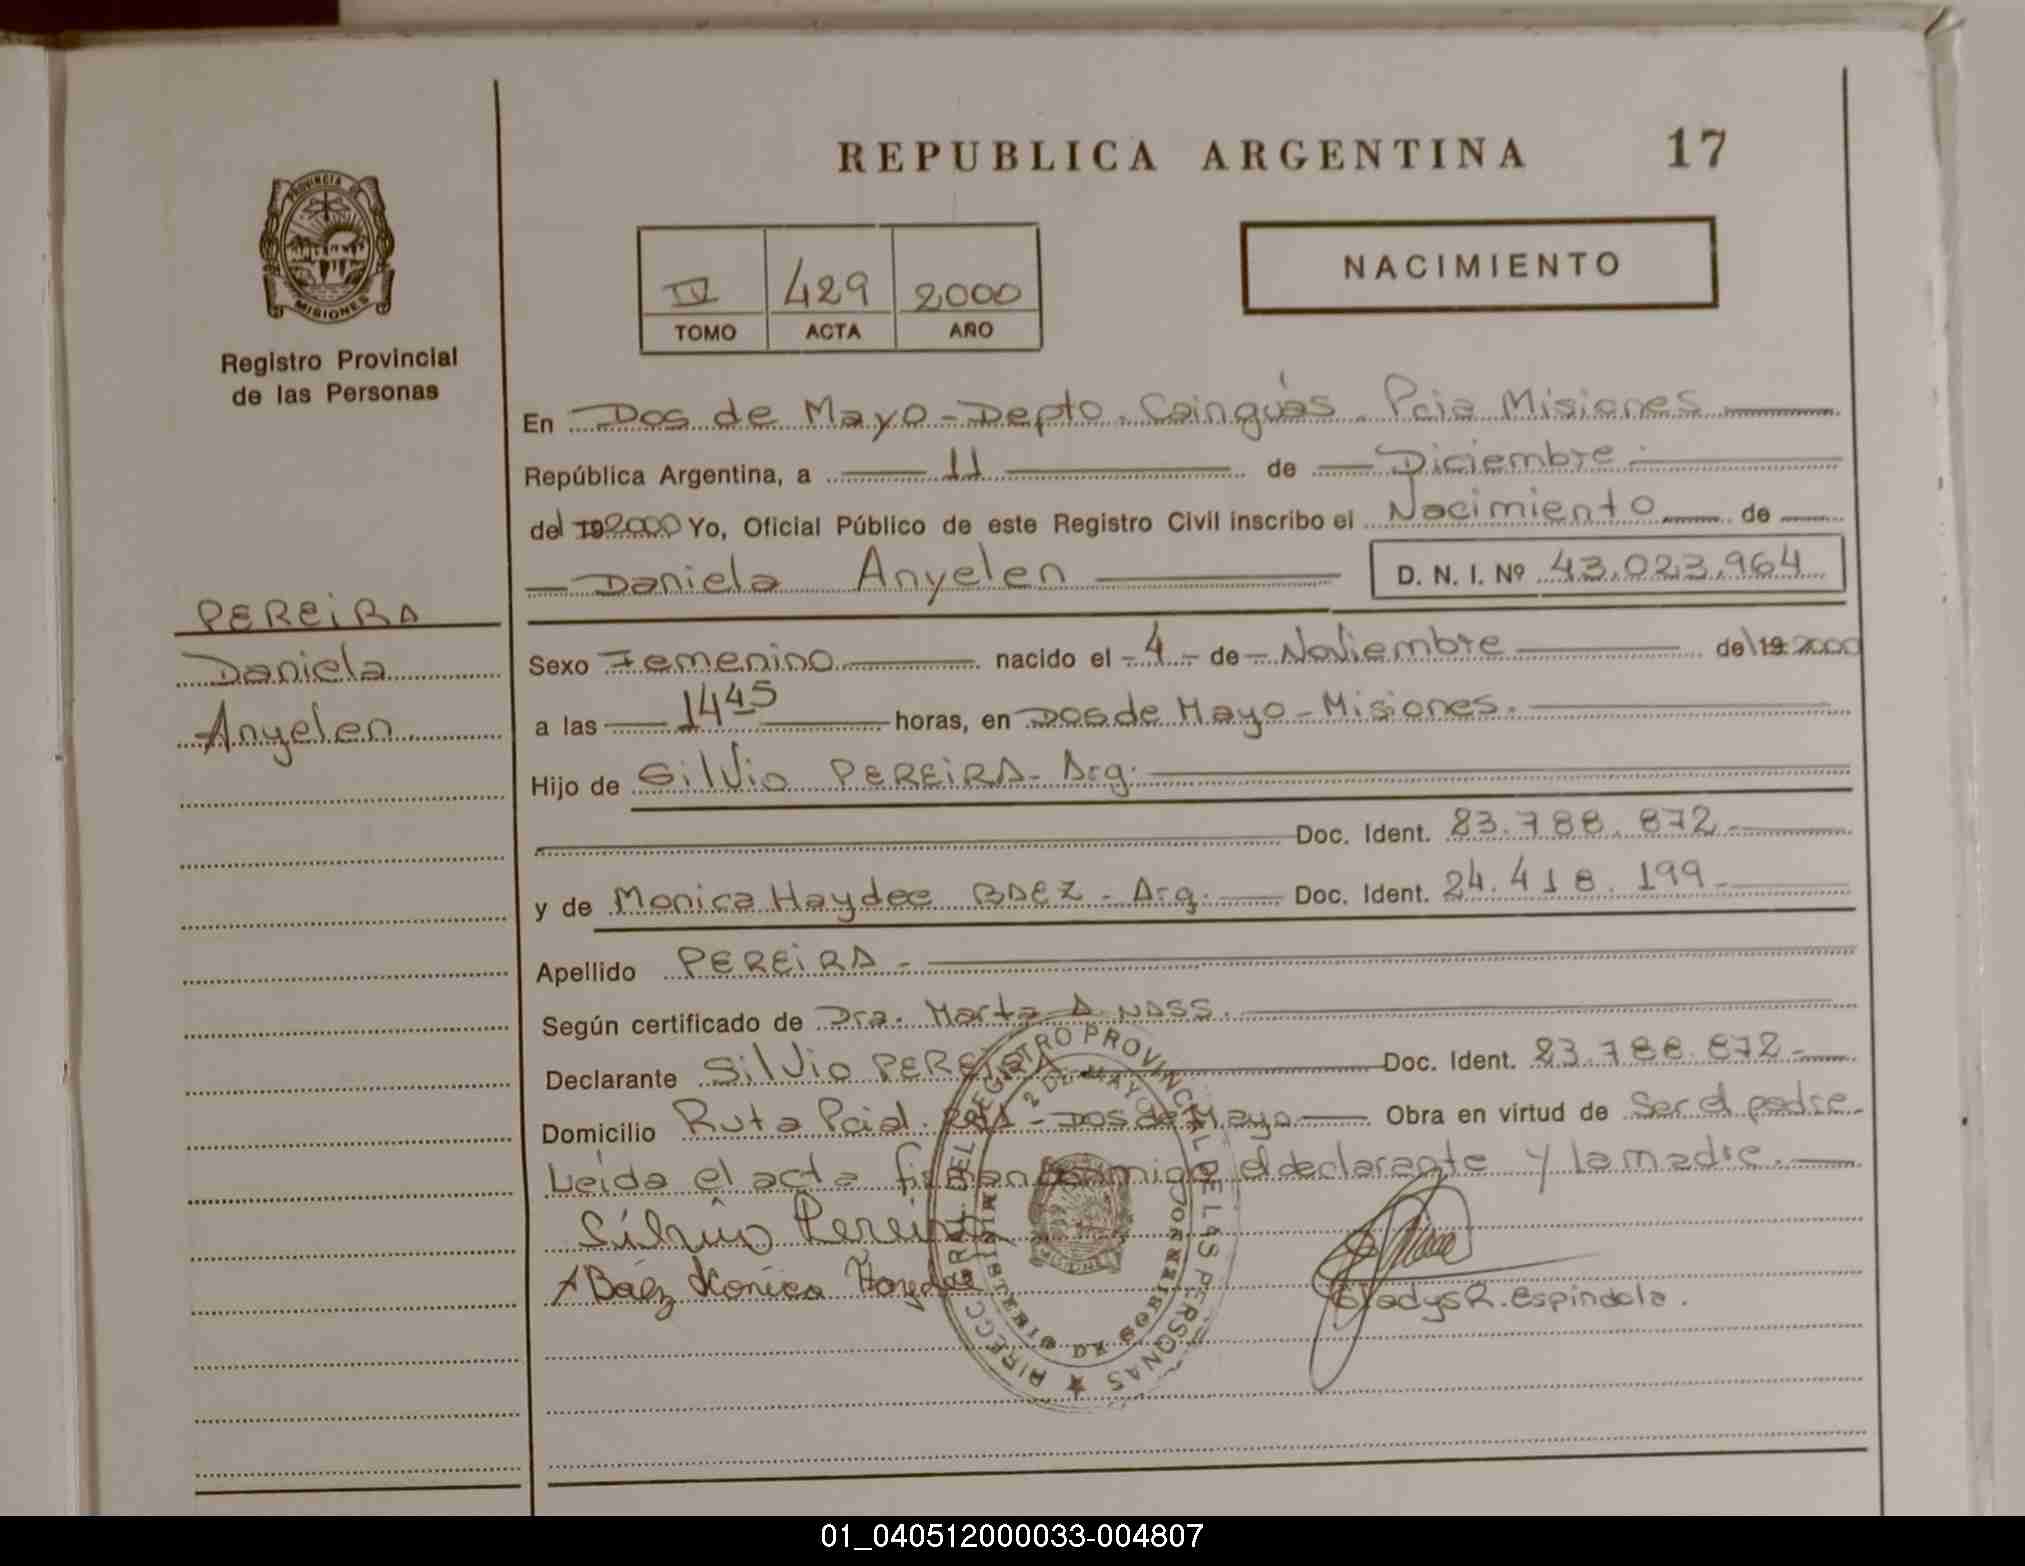 REPUBLICA ARGENTINA 17
PROVINCIA DE MISIONES
Registro Provincial
de las Personas
IV 429 2000
TOMO ACTA AÑO
NACIMIENTO
En Dos de Mayo - Depto. Cainguás. Pcia Misiones
República Argentina, a 11 de Diciembre
del 19 2000 Yo, Oficial Público de este Registro Civil inscribo el Nacimiento de
Daniela Anyelen D. N. I. Nº 43.023.964
PEREIRA
Daniela
Anyelen
Sexo Femenino nacido el - 4 - de Noviembre del 19 2000
a las 14 45 horas, en Dos de Mayo - Misiones.
Hijo de Silvio PEREIRA - Arg.
Doc. Ident. 23.788.872
y de Monica Haydee BAEZ - Arg. Doc. Ident. 24.418.199
Apellido PEREIRA -
Según certificado de Dra. Marta A NASS.
Declarante Silvio PEREIRA Doc. Ident. 23.788.872
Domicilio Ruta Pcial. - Dos de Mayo Obra en virtud de Ser el padre
Leída el acta firman conmigo el declarante y la madre.
Silvio Pereira
Báez Monica Haydee
Gladys R. Espindola.
DIRECC. GRAL. DEL REGISTRO PROVINCIAL DE LAS PERSONAS
2 DE MAYO
MINISTERIO DE GOBIERNO
MISIONES
01_040512000033-004807